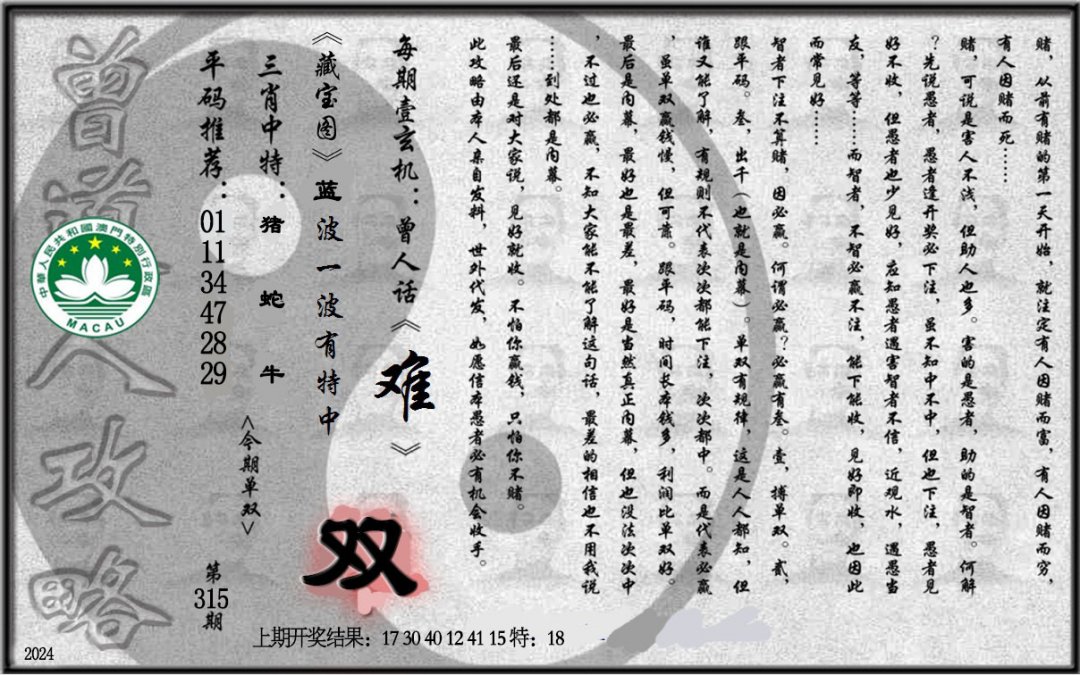 赌，从前有赌的第一天开始，就注定有人因赌而富，有人因赌而穷，
有人因赌而死……
赌，可说是害人不浅，但助人也多。害的是愚者，助的是智者。何解
？先说愚者，愚者逢开奖必下注，虽不知中不中，但也下注，愚者见
好不收，但愚者也少见好，应知愚者遇害智者不信，近观水，遇愚当
友，等等……而智者，不智必赢不注，能下能收，见好即收，也因此
而常见好……
智者下注不算赌，因必赢。何谓必赢？必赢有叁。壹，搏单双。贰，
跟平码。叁，出千（也就是内幕）。单双有规律，这是人人都知，但
谁又能了解，有规则不代表次次都能下注，次次都中。而是代表必赢
，虽单双赢钱慢，但可靠。跟平码，时间长本钱多，利润比单双好。
最后是内幕，最好也是最差，最好是当然真正内幕，但也没法次次中
，不过也必赢，不知大家能不能了解这句话，最差的相信也不用我说
……到处都是内幕。
最后还是对大家说，见好就收。不怕你赢钱，只怕你不赌。
此攻略由本人亲自发料，世外代发，如愿信本愚者必有机会收手。
每期壹玄机：曾人话《难》
《藏宝图》蓝波一波有特中
双
三肖中特：猪 蛇 牛
<今期单双>
平码推荐：01 11 34 47 28 29
第315期
曾道人攻略
中華人民共和國澳門特別行政區
MACAU
上期开奖结果：17 30 40 12 41 15 特：18
2024